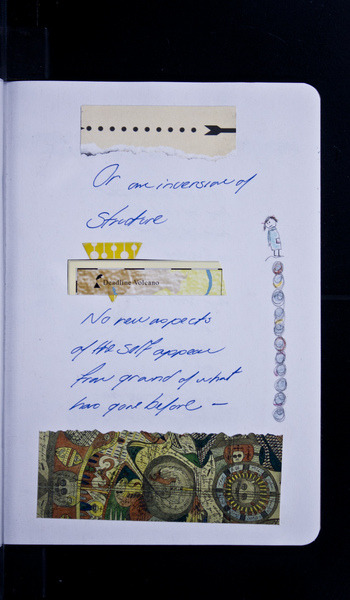 Or an inversion of
Structure
Deadline Volcano
No new aspects
of the self appear
from ground of what
has gone before —